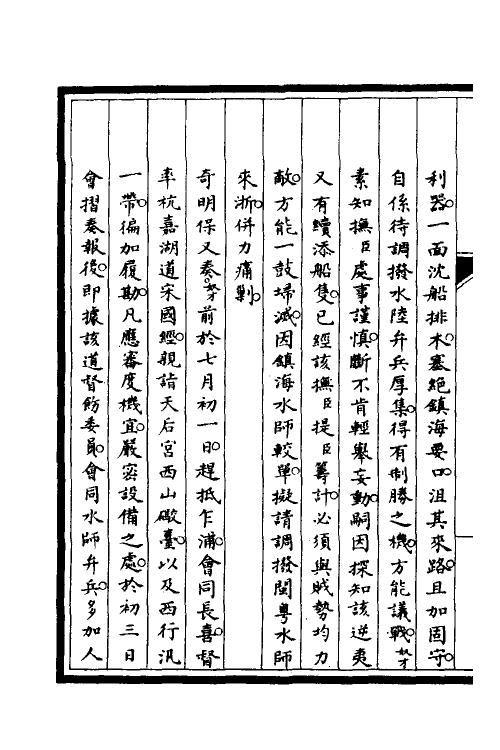 利器。一面沈船排木。塞絕鎮海要口。沮其來路。且加固守。
自係待調撥水陸弁兵厚集。得有制勝之機。方能議戰。奴才
素知撫臣處事謹慎。斷不肯輕舉妄動。嗣因探知該逆夷
又有續添船隻。已經該撫臣提臣籌計。必須與賊勢均力
敵。方能一鼓埽滅。因鎮海水師較單。擬請調撥閩粵水師
來浙。併力痛剿。
奇明保又奏。奴才前於七月初一日。趕抵乍浦。會同長喜。督
率杭嘉湖道宋國經。親詣天后宮西山礮臺。以及西行汛
一帶。徧加履勘。凡應審度機宜。嚴密設備之處。於初三日
會摺奏報後。即據該道督飭委員。會同水師弁兵。多加人